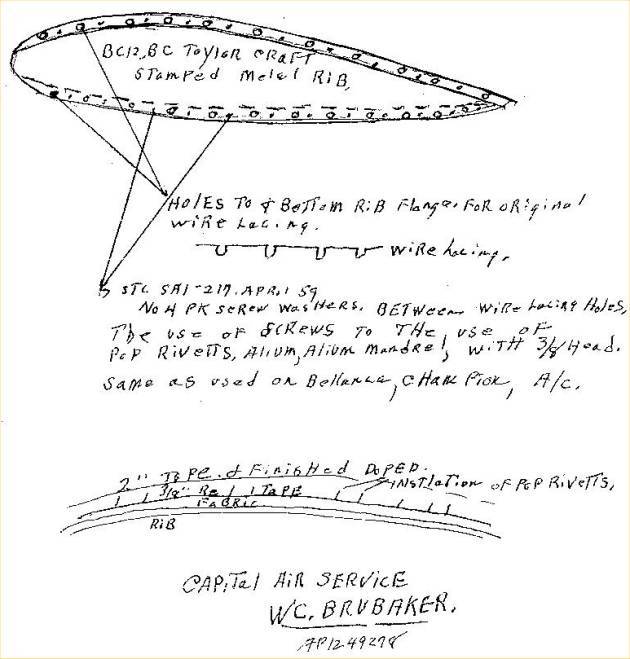 BC12, BC Taylor CRAFT
STamped Metel RiB,
HOLES TO & BoTTom RiB Flange. FOR ORiginal
WiRe Lacing.
WiRe Lacing,
STC SA1-217. APRIL 59
No 4 PK SCREW WASHERS. BETWEEN WiRe Lacing HOLES,
The use of SCREWS TO THE use OF
PoP RiveTTS, Alium, Alium mandrel, WiTH 3/8 Head.
Same as used on Bellanca, CHAM PioN, A/C.
2" TaPE & Finished DOPED.
INSTLation OF PoP RiveTTS,
3/8" TaPE
FaBRic
RiB
CAPiTal AiR SERVICE
W.C. BRUBAKER.